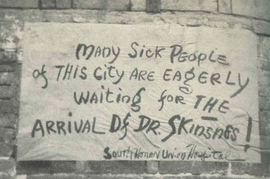 MANY SICK PEOPLE
of THIS CITY ARE EAGERLY
WAITING for THE
ARRIVAL Of DR. SKINSNES!
SOUTH HONAN UNION HOSPITAL